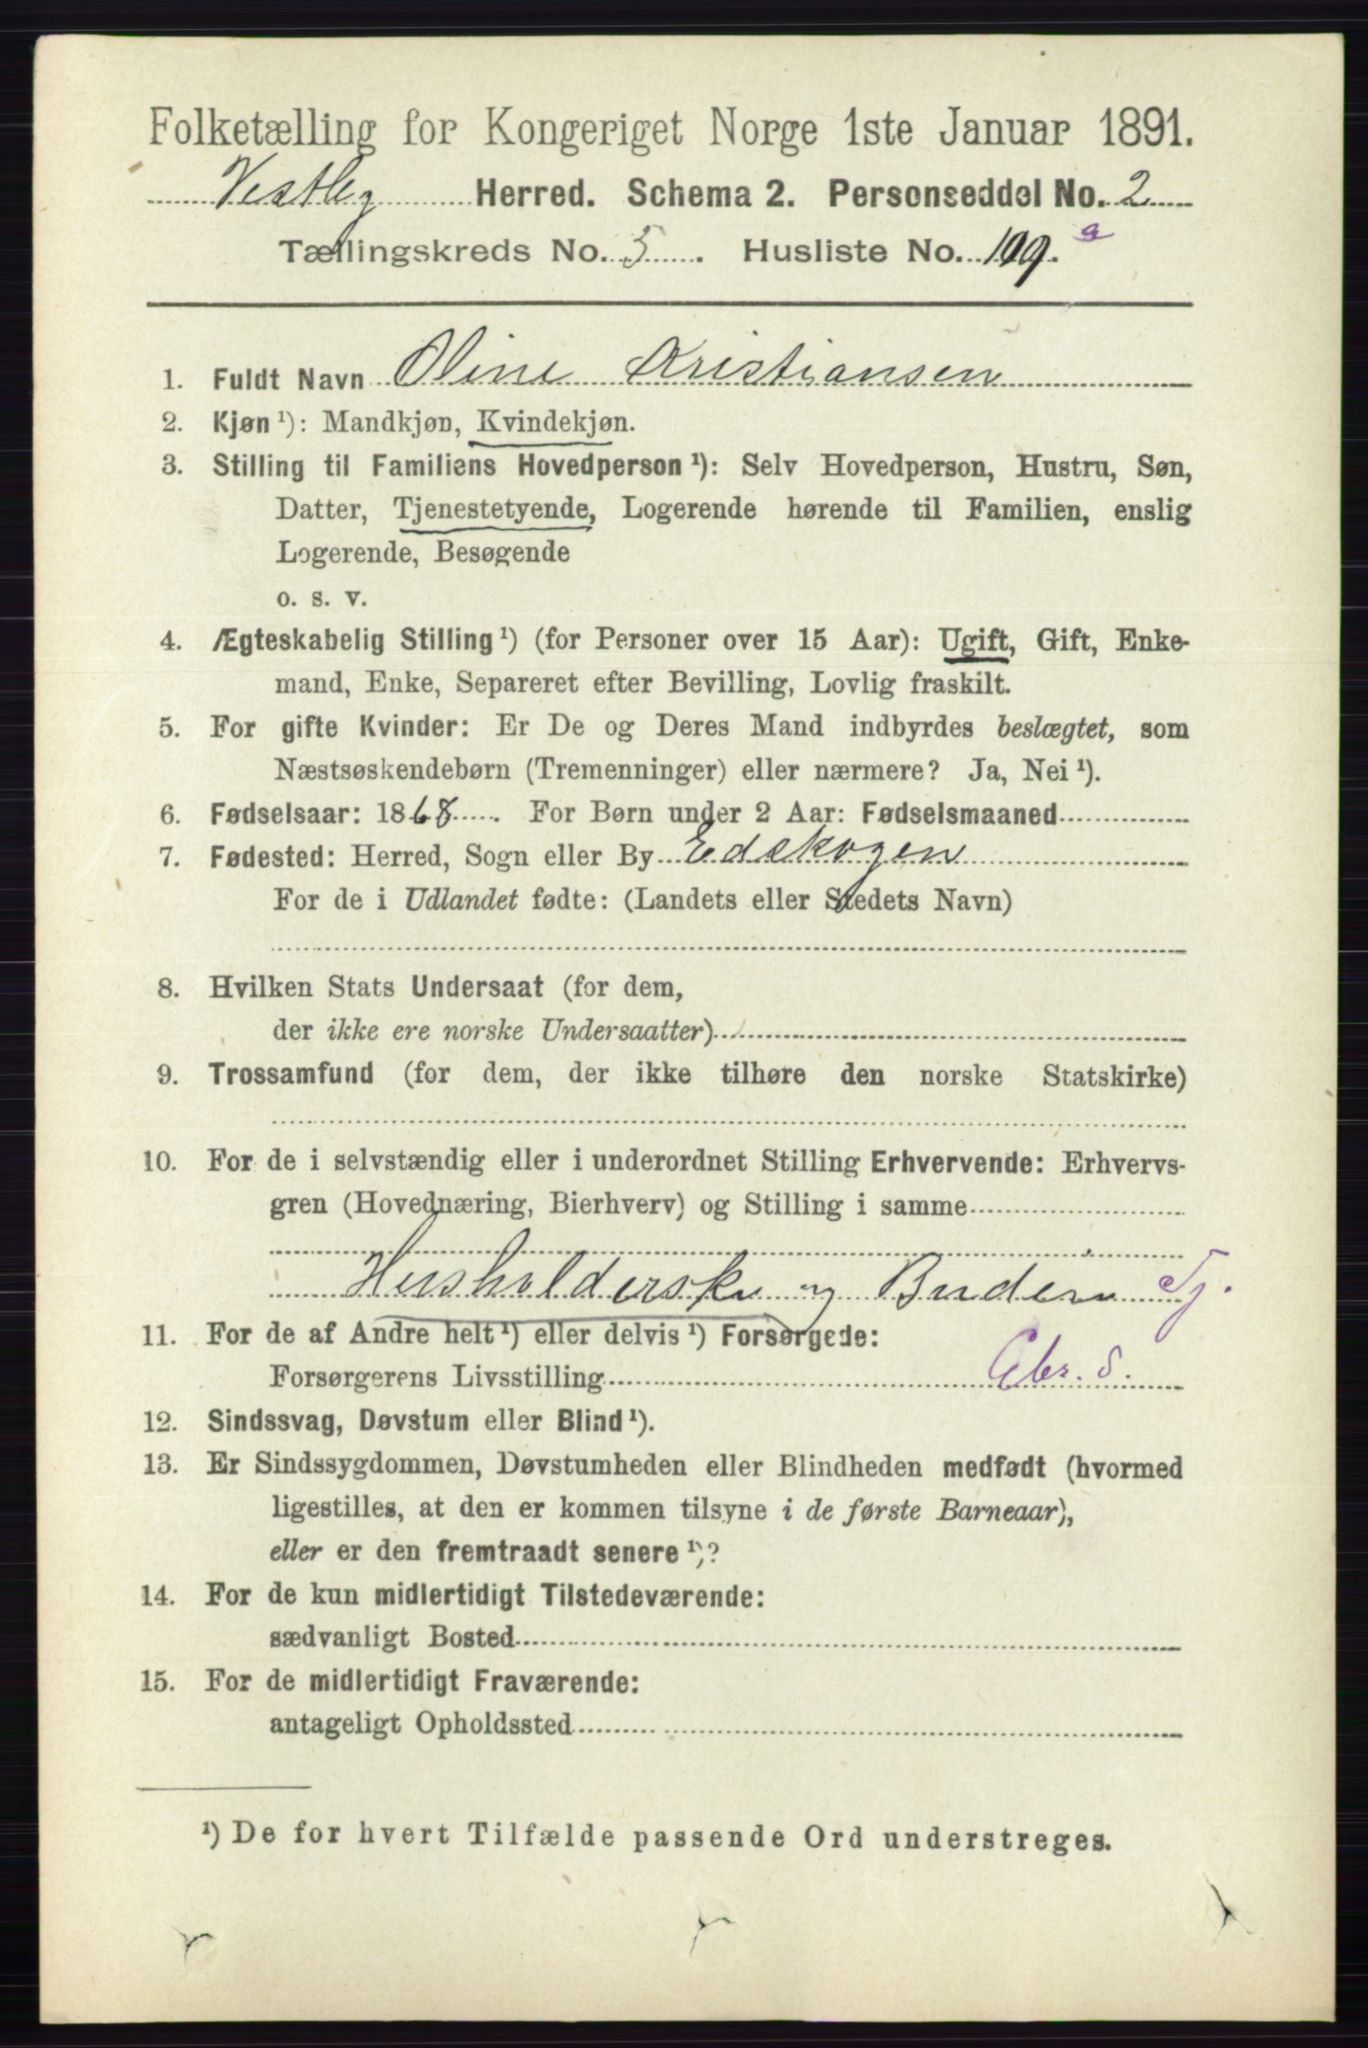 Folketælling for Kongeriget Norge 1ste Januar 1891.
Vestby Herred. Schema 2. Personseddel No. 2
Tællingskreds No. 5. Husliste No. 109. a
1. Fuldt Navn Oline Kristiansen
2. Kjøn ¹): Mandkjøn, Kvindekjøn.
3. Stilling til Familiens Hovedperson ¹): Selv Hovedperson, Hustru, Søn,
Datter, Tjenestetyende, Logerende hørende til Familien, enslig
Logerende, Besøgende
o. s. v.
4. Ægteskabelig Stilling ¹) (for Personer over 15 Aar): Ugift, Gift, Enke-
mand, Enke, Separeret efter Bevilling, Lovlig fraskilt.
5. For gifte Kvinder: Er De og Deres Mand indbyrdes beslægtet, som
Næstsøskendebørn (Tremenninger) eller nærmere? Ja, Nei ¹).
6. Fødselsaar: 1868. For Børn under 2 Aar: Fødselsmaaned
7. Fødested: Herred, Sogn eller By Edskogen
For de i Udlandet fødte: (Landets eller Stedets Navn)
8. Hvilken Stats Undersaat (for dem,
der ikke ere norske Undersaatter)
9. Trossamfund (for dem, der ikke tilhøre den norske Statskirke)
10. For de i selvstændig eller i underordnet Stilling Erhvervende: Erhvervs-
gren (Hovednæring, Bierhverv) og Stilling i samme
Husholderske og Budeie Tj.
11. For de af Andre helt ¹) eller delvis ¹) Forsørgede:
Forsørgerens Livsstilling
12. Sindssvag, Døvstum eller Blind ¹).
13. Er Sindssygdommen, Døvstumheden eller Blindheden medfødt (hvormed
ligestilles, at den er kommen tilsyne i de første Barneaar),
eller er den fremtraadt senere ¹)?
14. For de kun midlertidigt Tilstedeværende:
sædvanligt Bosted
15. For de midlertidigt Fraværende:
antageligt Opholdssted
¹) De for hvert Tilfælde passende Ord understreges.